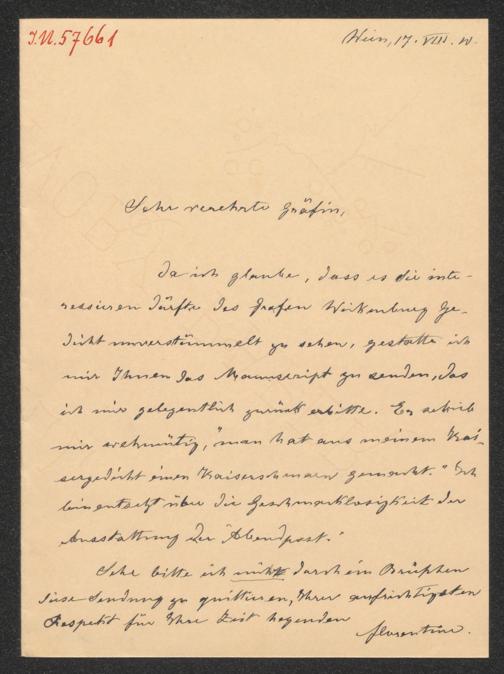 I.N. 57661
Wien, 17. VIII. 10.
Sehr verehrte Gräfin,
Da ich glaube, dass es die inte-
ressieren dürfte des Grafen Wickenburg Ge-
dicht unverstümmelt zu sehen, gestatte ich
mir Ihnen das Manuscript zu senden, das
ich mir gelegentlich zurück erbitte. Er schrieb
mir wehmütig, "man hat aus meinem Kai-
sergedicht einen Kaiserschmarn gemacht." Ich
bin entsetzt über die Geschmacklosigkeit der
Ausstattung der "Abendpost."
Sehr bitte ich nicht durch ein Brieflein
diese Sendung zu quittieren, Ihrer aufrichtigsten
Respekt für Ihre Zeit hegenden
Florentine.